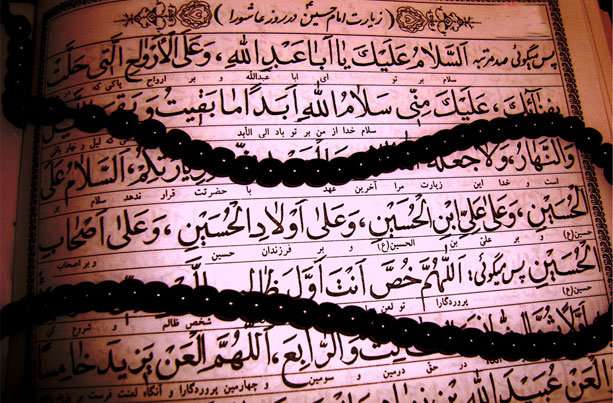 زیارت امام حسین ع در روز عاشورا
پس میگوئی صد مرتبه اَلسَّلامُ عَلَیْكَ یا اَبا عَبْدِ اللهِ، وَعَلَی الْاَرْواحِ الَّتی حَلَّتْ
سلام بر تو ای ابا عبدالله و بر ارواح پاکی که
بِفِنائِكَ، عَلَیْكَ مِنّی سَلامُ اللهِ اَبَداً ما بَقیتُ وَبَقِیَ اللَّیْلُ
سلام خدا از من بر تو باد الی الأبد
وَالنَّهارُ، وَلا جَعَلَهُ اَلسَّلامُ عَلَی
است و خدا این زیارت مرا آخرین عهد با حضرتت قرار ندهد سلام بر
الْحُسَیْنِ، وَعَلی عَلِیِّ ابْنِ الْحُسَیْنِ، وَعَلی اَوْلادِ الْحُسَیْنِ، وَعَلی اَصْحابِ
حسین(ع) و بر علی بن الحسین(ع) و بر فرزندان حسین و بر اصحاب
الْحُسَیْنِ پس میگوئی: اَللّهُمَّ خُصَّ اَنْتَ اَوَّلَ ظالِمٍ
حسین(ع) پروردگارا تو لعن شخص ظالم و شروع
وَالرّابِعَ، اَللّهُمَّ الْعَنْ یَزیدَ خامِساً
در حق دومین و سومین و چهارمین پروردگارا و آنگاه لعنت فرست بر یزید
الْعَنْ عُبَیْدَ اللهِ بْنَ